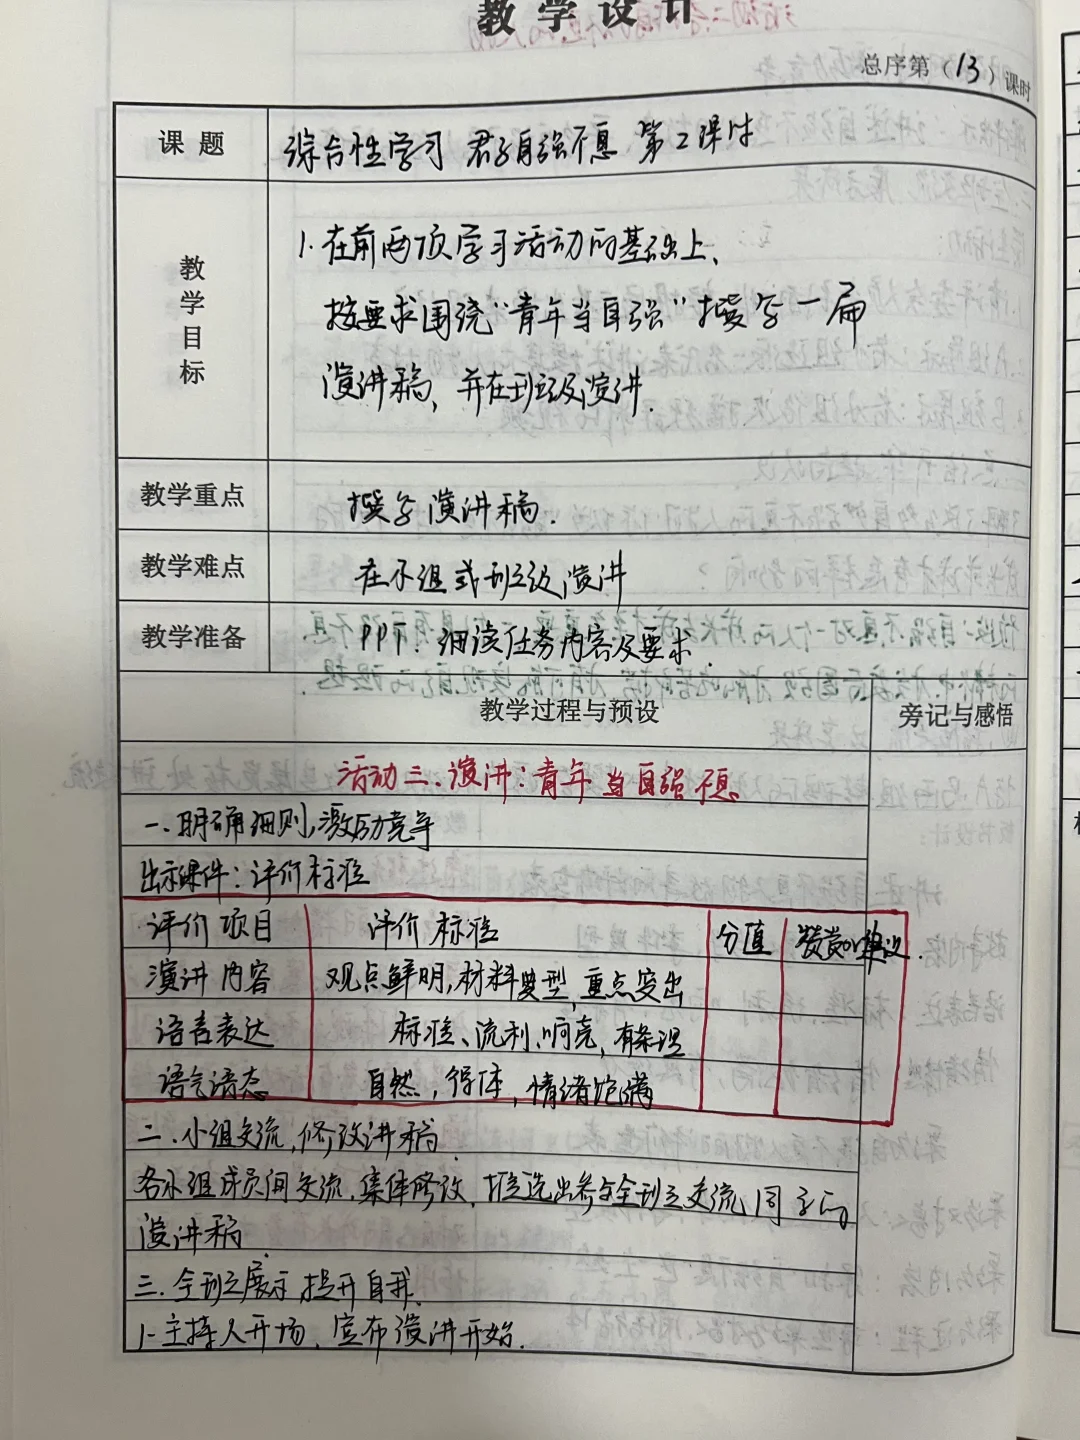 教学设计
总序第（13）课时
课题 综合性学习 君子自强不息 第2课时
教学目标
1.在前两项学习活动的基础上、
按要求围绕“青年当自强”撰写一篇
演讲稿，并在班级演讲.
教学重点 撰写演讲稿.
教学难点 在小组或班级演讲
教学准备 PPT. 细读任务内容及要求.
教学过程与预设 旁记与感悟
活动三、演讲：青年当自强不息
一.明确细则,激励竞争
出示课件：评价标准
评价项目 评价标准 分值 赞赏or建议.
演讲内容 观点鲜明,材料典型,重点突出
语言表达 标准、流利、响亮,有条理
语气语态 自然,得体,情绪饱满
二.小组交流,修改讲稿.
各小组成员间交流,集体修改,推选出参与全班交流同学的
演讲稿.
三.全班展示 提升自我.
1.主持人开场,宣布演讲开始.